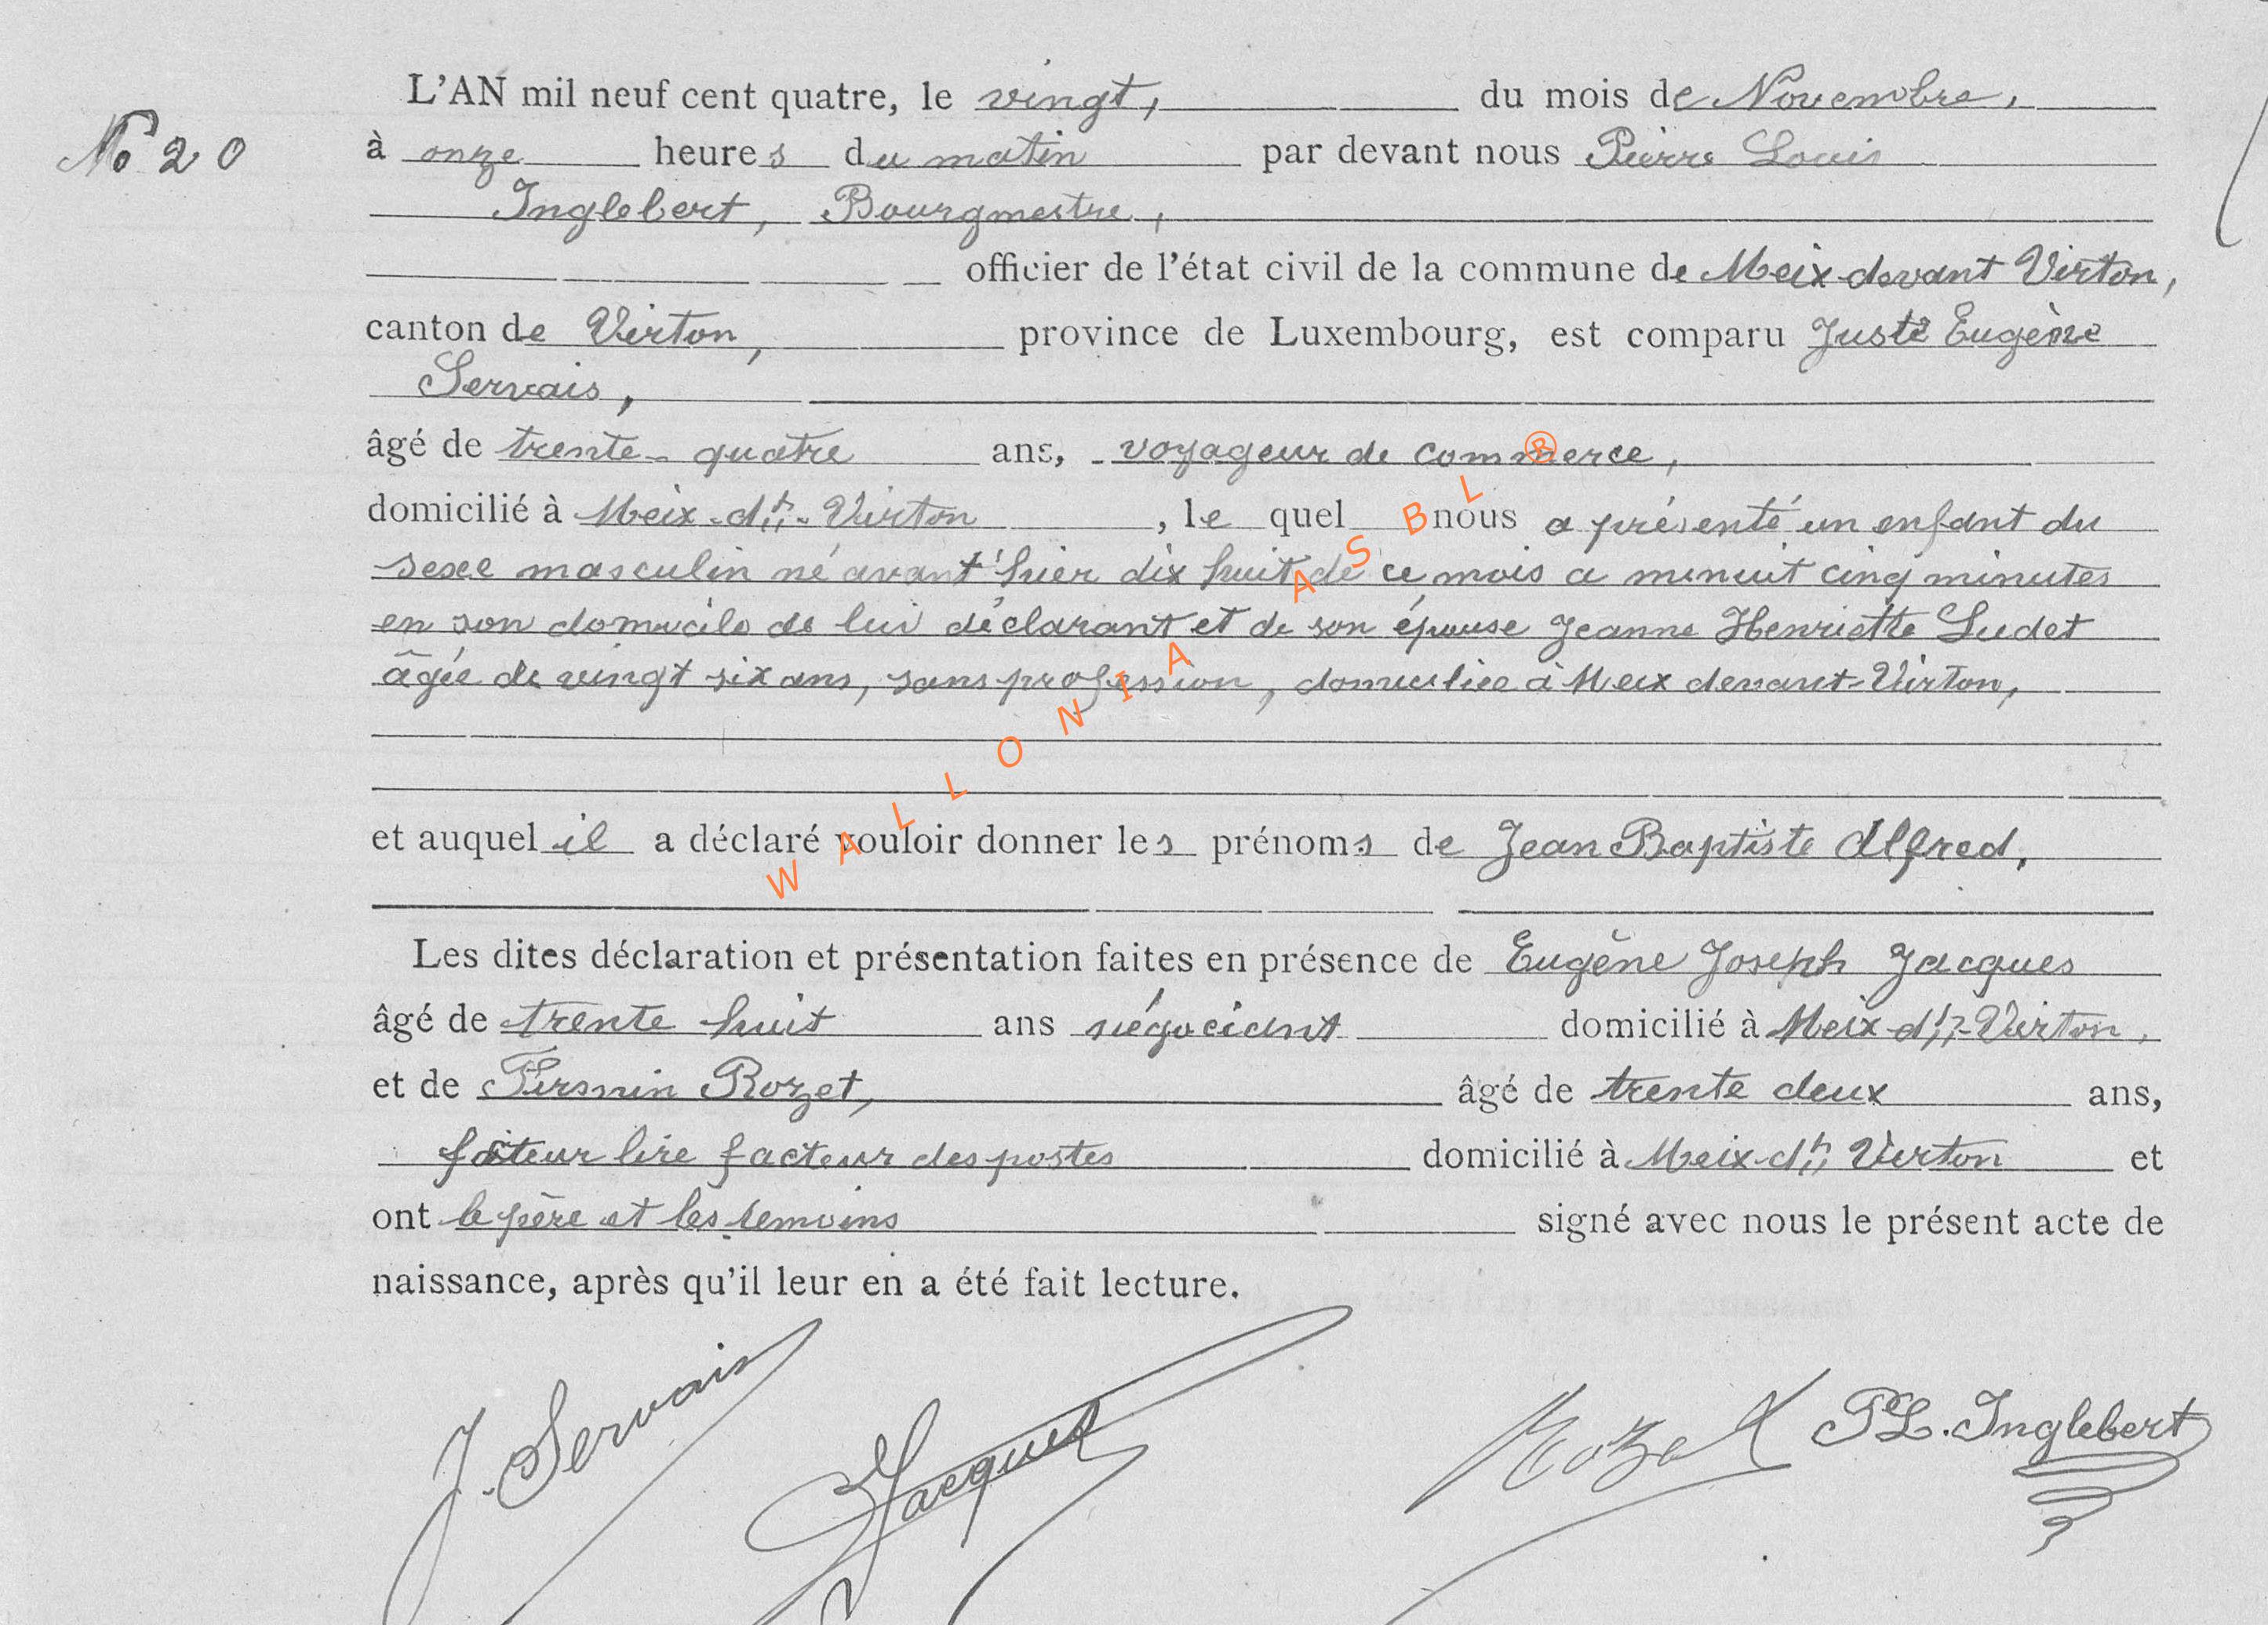 L'AN mil neuf cent quatre, le vingt, du mois de Novembre,
No 20
à onze heures du matin par devant nous Pierre Louis
Inglebert, Bourgmestre,
officier de l'état civil de la commune de Meix devant Virton,
canton de Virton, province de Luxembourg, est comparu Juste Eugène
Servais,
âgé de trente-quatre ans, voyageur de commerce,
domicilié à Meix-dt-Virton, le quel nous a présenté un enfant du
sexe masculin né avant'hier dix huit de ce mois a minuit cinq minutes
en son domicile de lui déclarant et de son épouse Jeanne Henriette Ludet
âgée de vingt six ans, sans profession, domiciliée à Meix devant-Virton,
et auquel il a déclaré vouloir donner les prénoms de Jean Baptiste Alfred,
Les dites déclaration et présentation faites en présence de Eugène Joseph Jacques
âgé de trente huit ans négociant domicilié à Meix-dt-Virton,
et de Firmin Rozet, âgé de trente deux ans,
lire facteur des postes domicilié à Meix-dt Virton et
ont le père et les temoins signé avec nous le présent acte de
naissance, après qu'il leur en a été fait lecture.
J. Servais Jacques Rozet PL. Inglebert
WALLONIA ASBL ®